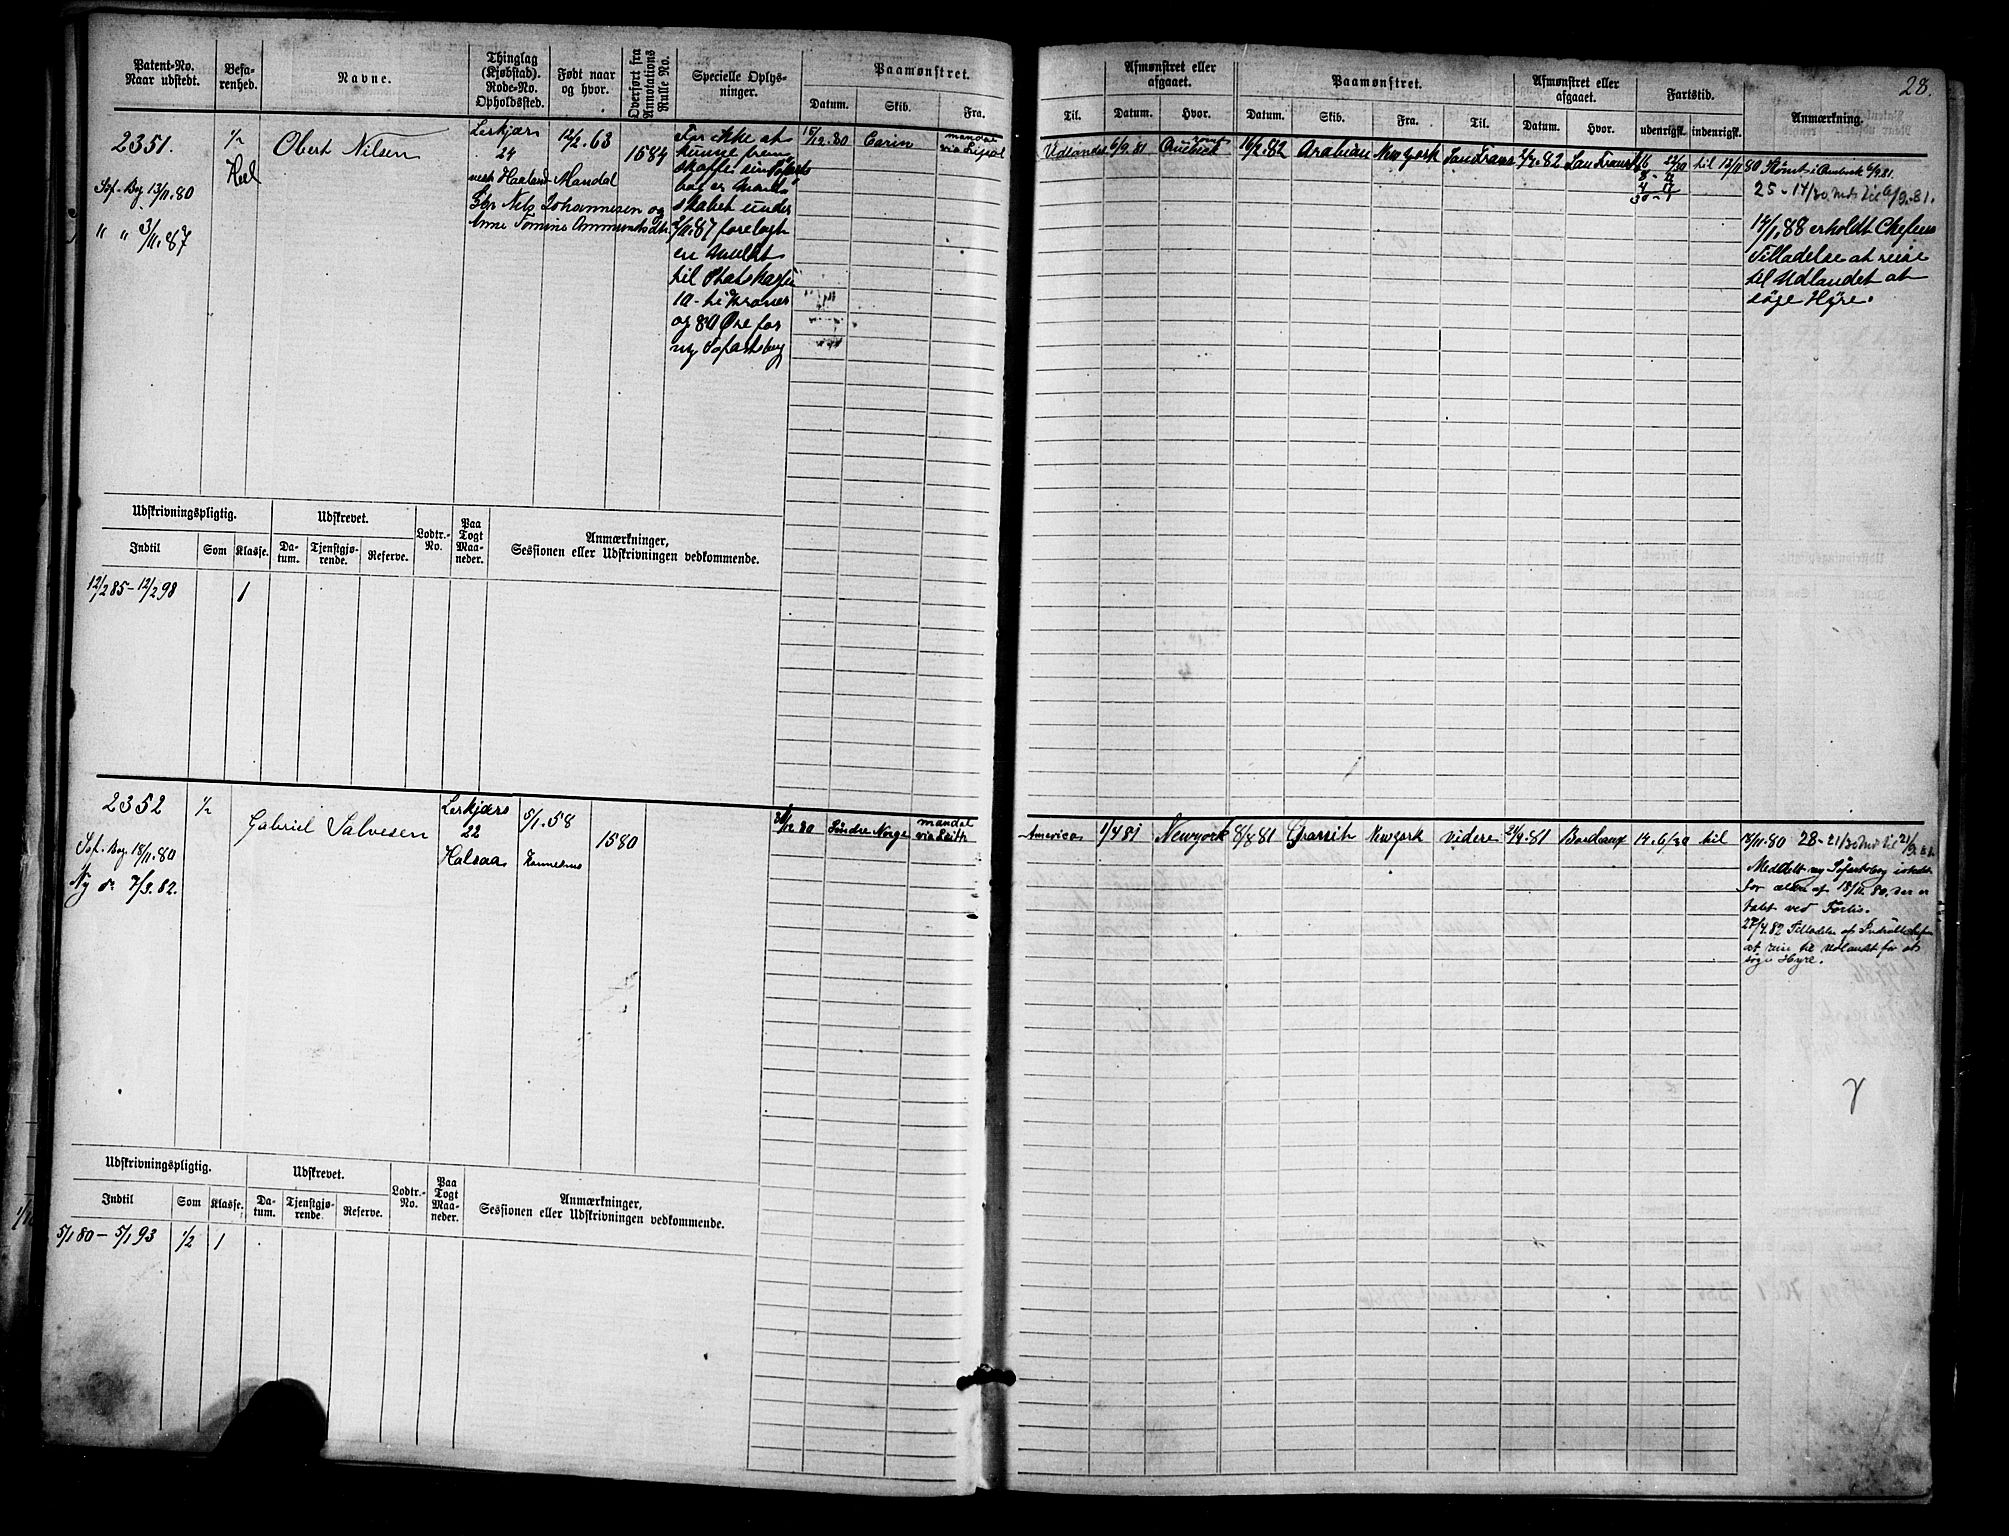 28.
Patent-No.
Naar udstedt.
Befa-
renhed.
Navne.
Thinglag
(Kjøbstad).
Rode-No.
Opholdssted.
Født naar
og hvor.
Overført fra
Annotations
Rulle No.
Specielle Oplys-
ninger.
Paamønstret.
Datum. Skib. Fra.
Til.
Afmønstret eller
afgaaet.
Datum. Hvor.
Paamønstret.
Datum. Skib. Fra. Til.
Afmønstret eller
afgaaet.
Datum. Hvor.
Fartstid.
udenrigsk. indenrigsk.
Anmærkning.
2351.
Søf. Bog 13/11.80
" " 3/11.87
1/2
Hel
Obert Nilsen
Lerkjær
24
vest Haaland
12/2.63
Mandal
Søn Nils Johannesen og
Anne Tomine Ammundsdtr.
1584
For ikke at
kunne frem
skaffe sin Søfarts
bog er Mand
skabet under
2/11.87 forelagt
en Mulkt
til Statskassen
10 - ti Kroner
og 80 Øre for
ny Søfartsbog
15/12.80 Carin
Mandal
via
Udlandet 6/9.81 rømt
Quebeck 16/2.82 Arabian Newyork San Frans 2/7.82 San Fransk
16 - 22/30 til 12/11 80 Rømt i Quebeck 6/9.81.
25 - 17/30 Mdr til 6/9.81.
14/1.88 erholdt Chefens
Tilladelse at reise
til Udlandet at
søge Hyre.
Udskrivningspligtig.
Indtil Som Klasse.
Udskrevet.
Da-
tum.
Tjenstgjø-
rende.
Reserve.
Lodtr.-
No.
Paa
Togt
Maa-
neder.
Anmærkninger,
Sessionen eller Udskrivningen vedkommende.
12/2 85 - 12/2 98 1
2352
Søf. Bog 18/11.80
Ny do 7/3.82.
1/2
Gabriel Salvesen
Lerkjærs
22
Halsaa
5/1.58
1580
12 80 Søndre Norge
Mandal
via Leith
America 1/4 81 Newyork 8/8 81 Newyork videre 21/9.81 Bordeaux 14. 6/30 til
18/11.80 28 - 21/30 Mdr til 21/9.81.
Meddelt ny Søfartsbog istedet
for ældre af 18/11.80. der er
tabt ved Forlis.
27/4.82 Tilladelse af Indrulleschefen
at reise til Udlandet for at
søge Hyre.
Udskrivningspligtig.
Indtil Som Klasse.
Udskrevet.
Da-
tum.
Tjenstgjø-
rende.
Reserve.
Lodtr.-
No.
Paa
Togt
Maa-
neder.
Anmærkninger,
Sessionen eller Udskrivningen vedkommende.
5/1 80 - 5/1 93 1/2 1